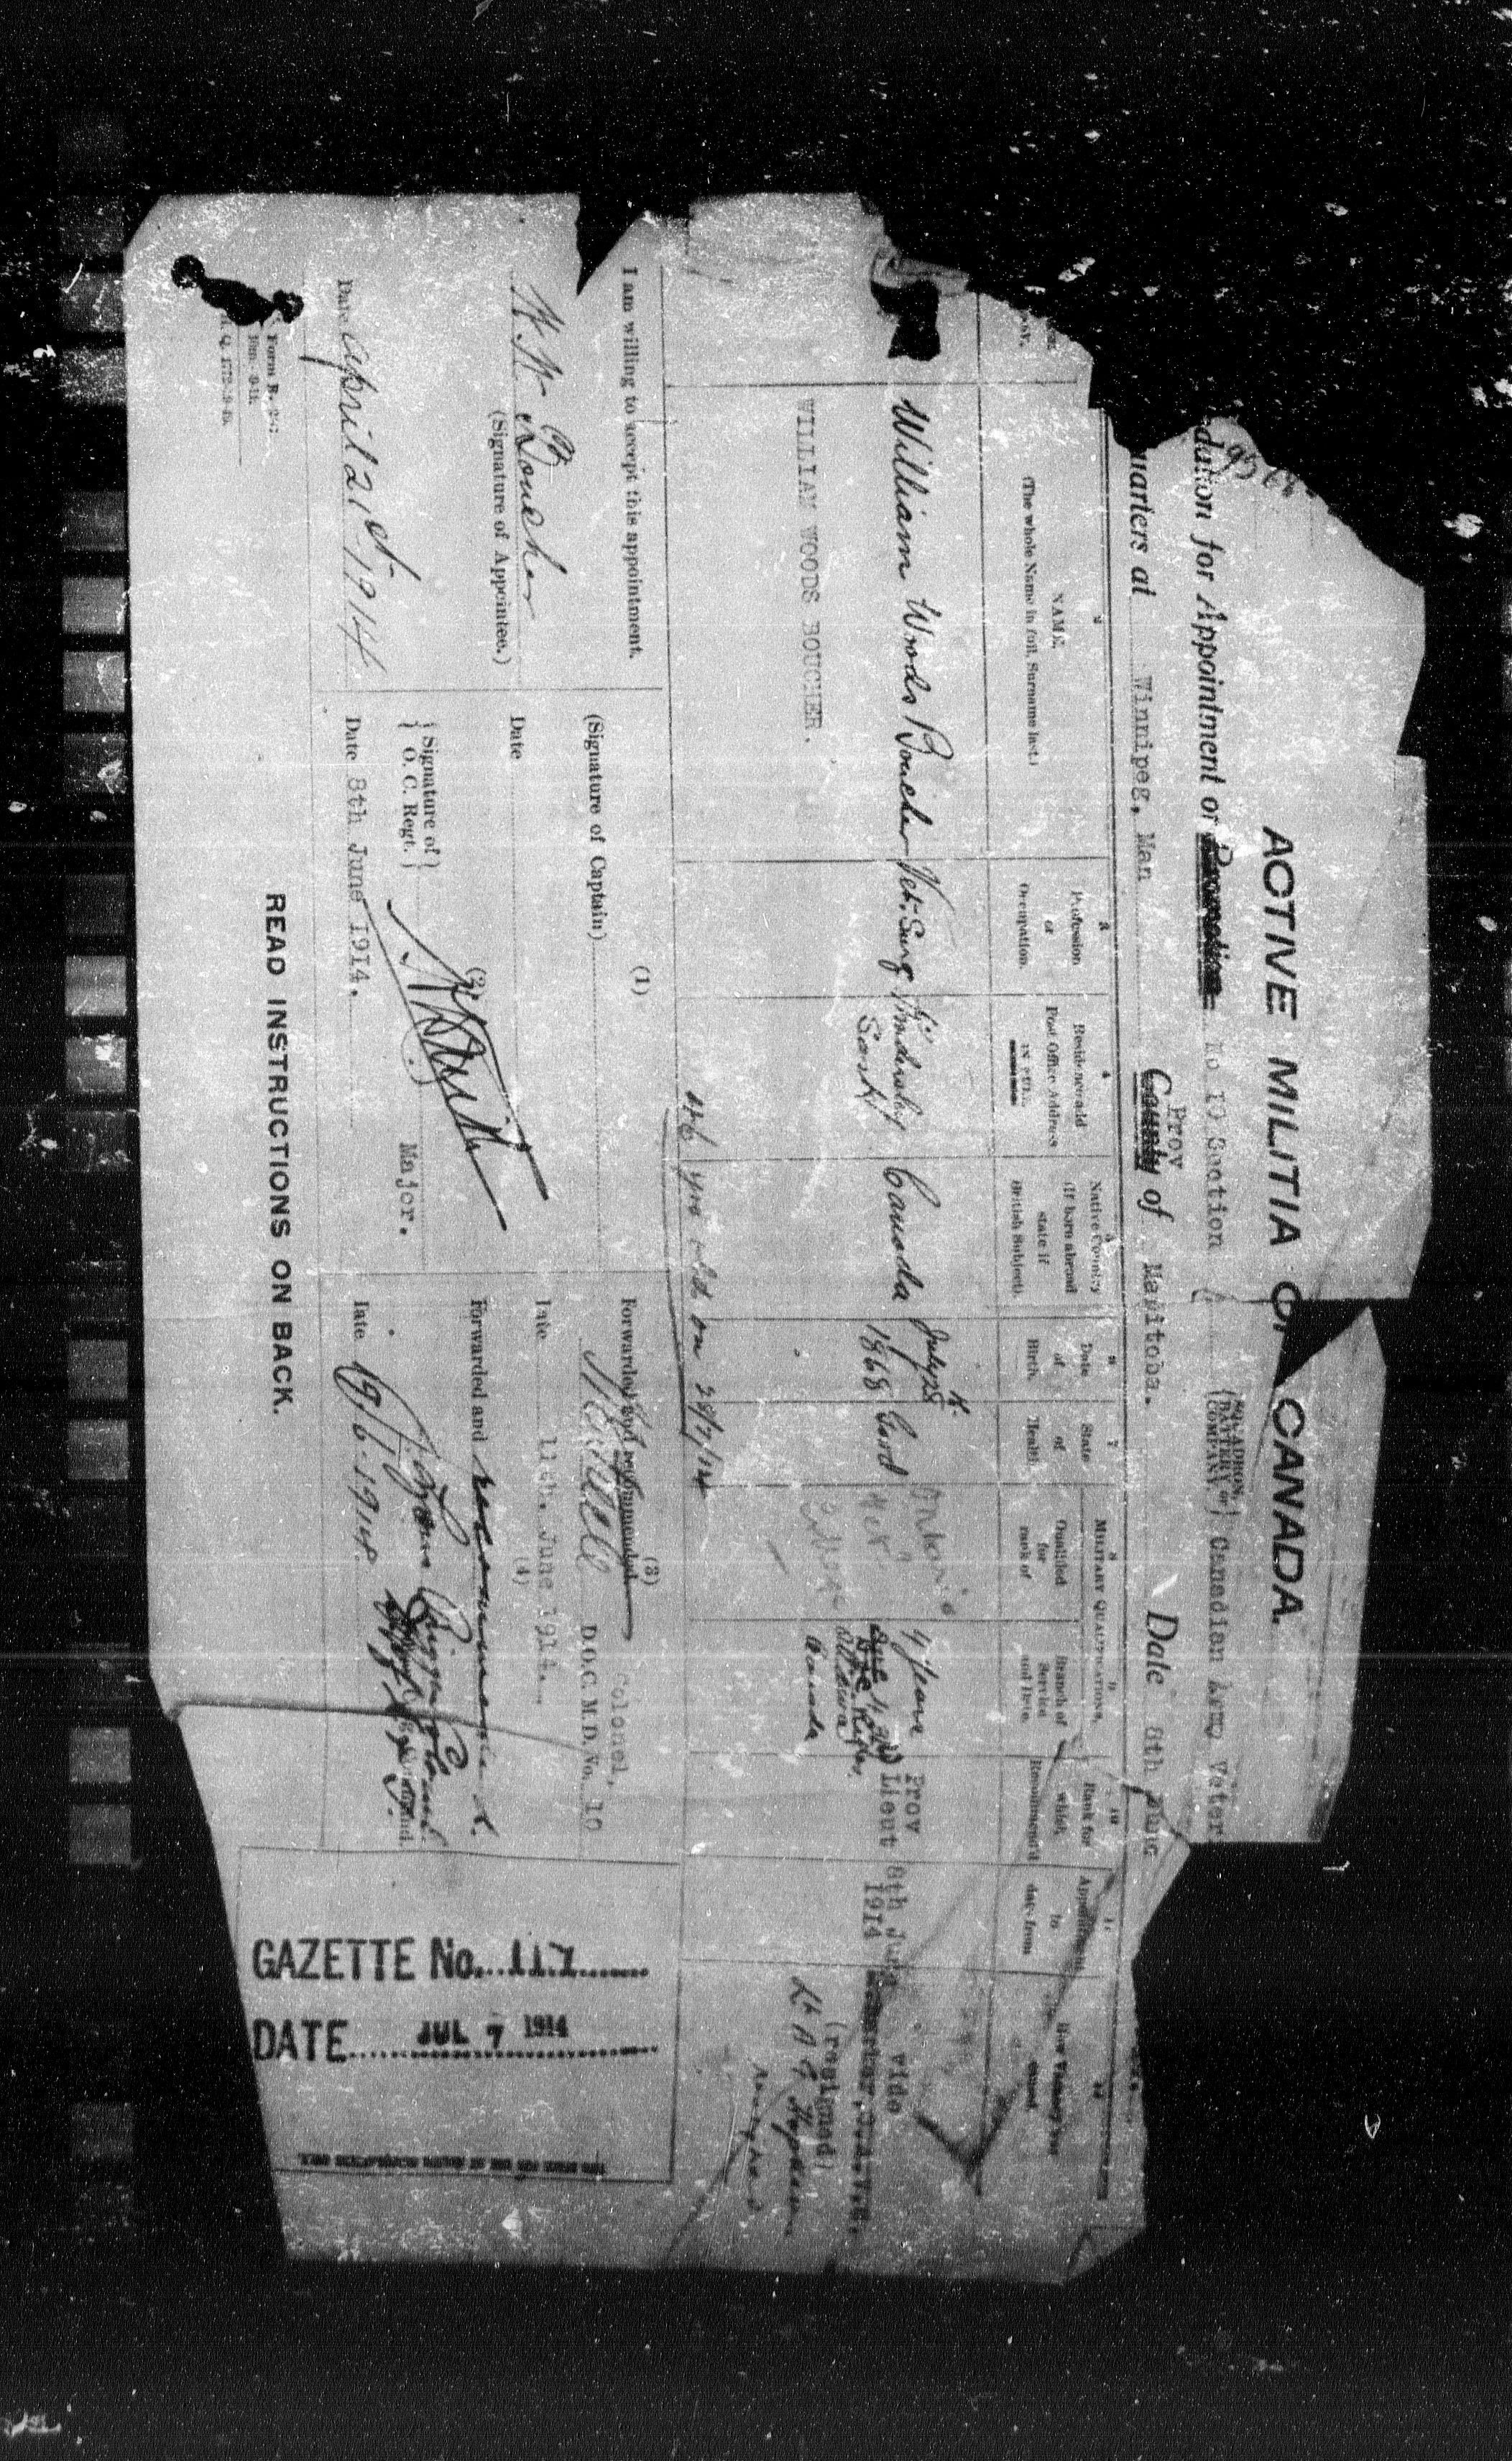 ACTIVE MILITIA OF CANADA.
dation for Appointment or Promotion No 10 Section
{SQUADRON, BATTERY or COMPANY} Canadian Army Veter
uarters at Winnipeg, Man
Prov
County of Manitoba.
Date 8th June
2
NAME.
(The whole Name in full, Surname last.)
3
Profession
or
Occupation.
4
Residence and
Post Office Address
IN FULL.
5
Native Country
(If born abroad
state if
British Subject).
6
Date
of
Birth.
7
State
of
Health.
MILITARY QUALIFICATIONS.
8
Qualified
for
rank of
9
Branch of
Service
and Date.
10
Rank for
which
Recommend'd
11
Appointment
to
date from
12
How Vacancy was
caused.
William Woods Boucher
Vet. Surg
Kindersley
Sask
Canada
July 28th
1868
Good
Ontario
Vet.
College
4 years
Ottawa
Canada
Prov
Lieut
8th June
1914
vide
(resigned)
WILLIAN WOODS BOUCHER.
46 yrs old on 28/7/14
I am willing to accept this appointment.
W. W. Boucher
(Signature of Appointee.)
Date April 21st 1914
(1)
(Signature of Captain)
Date
(2)
{Signature of
O. C. Regt.}
Major.
Date 8th June 1914.
(3)
Forwarded and recommended.
Colonel,
D.O.C. M.D. No. 10
Date 11th. June 1914.
(4)
Forwarded and recommended.
Date 19/6-1914.
GAZETTE No. 117
DATE JUL 7 1914
Form B.
READ INSTRUCTIONS ON BACK.